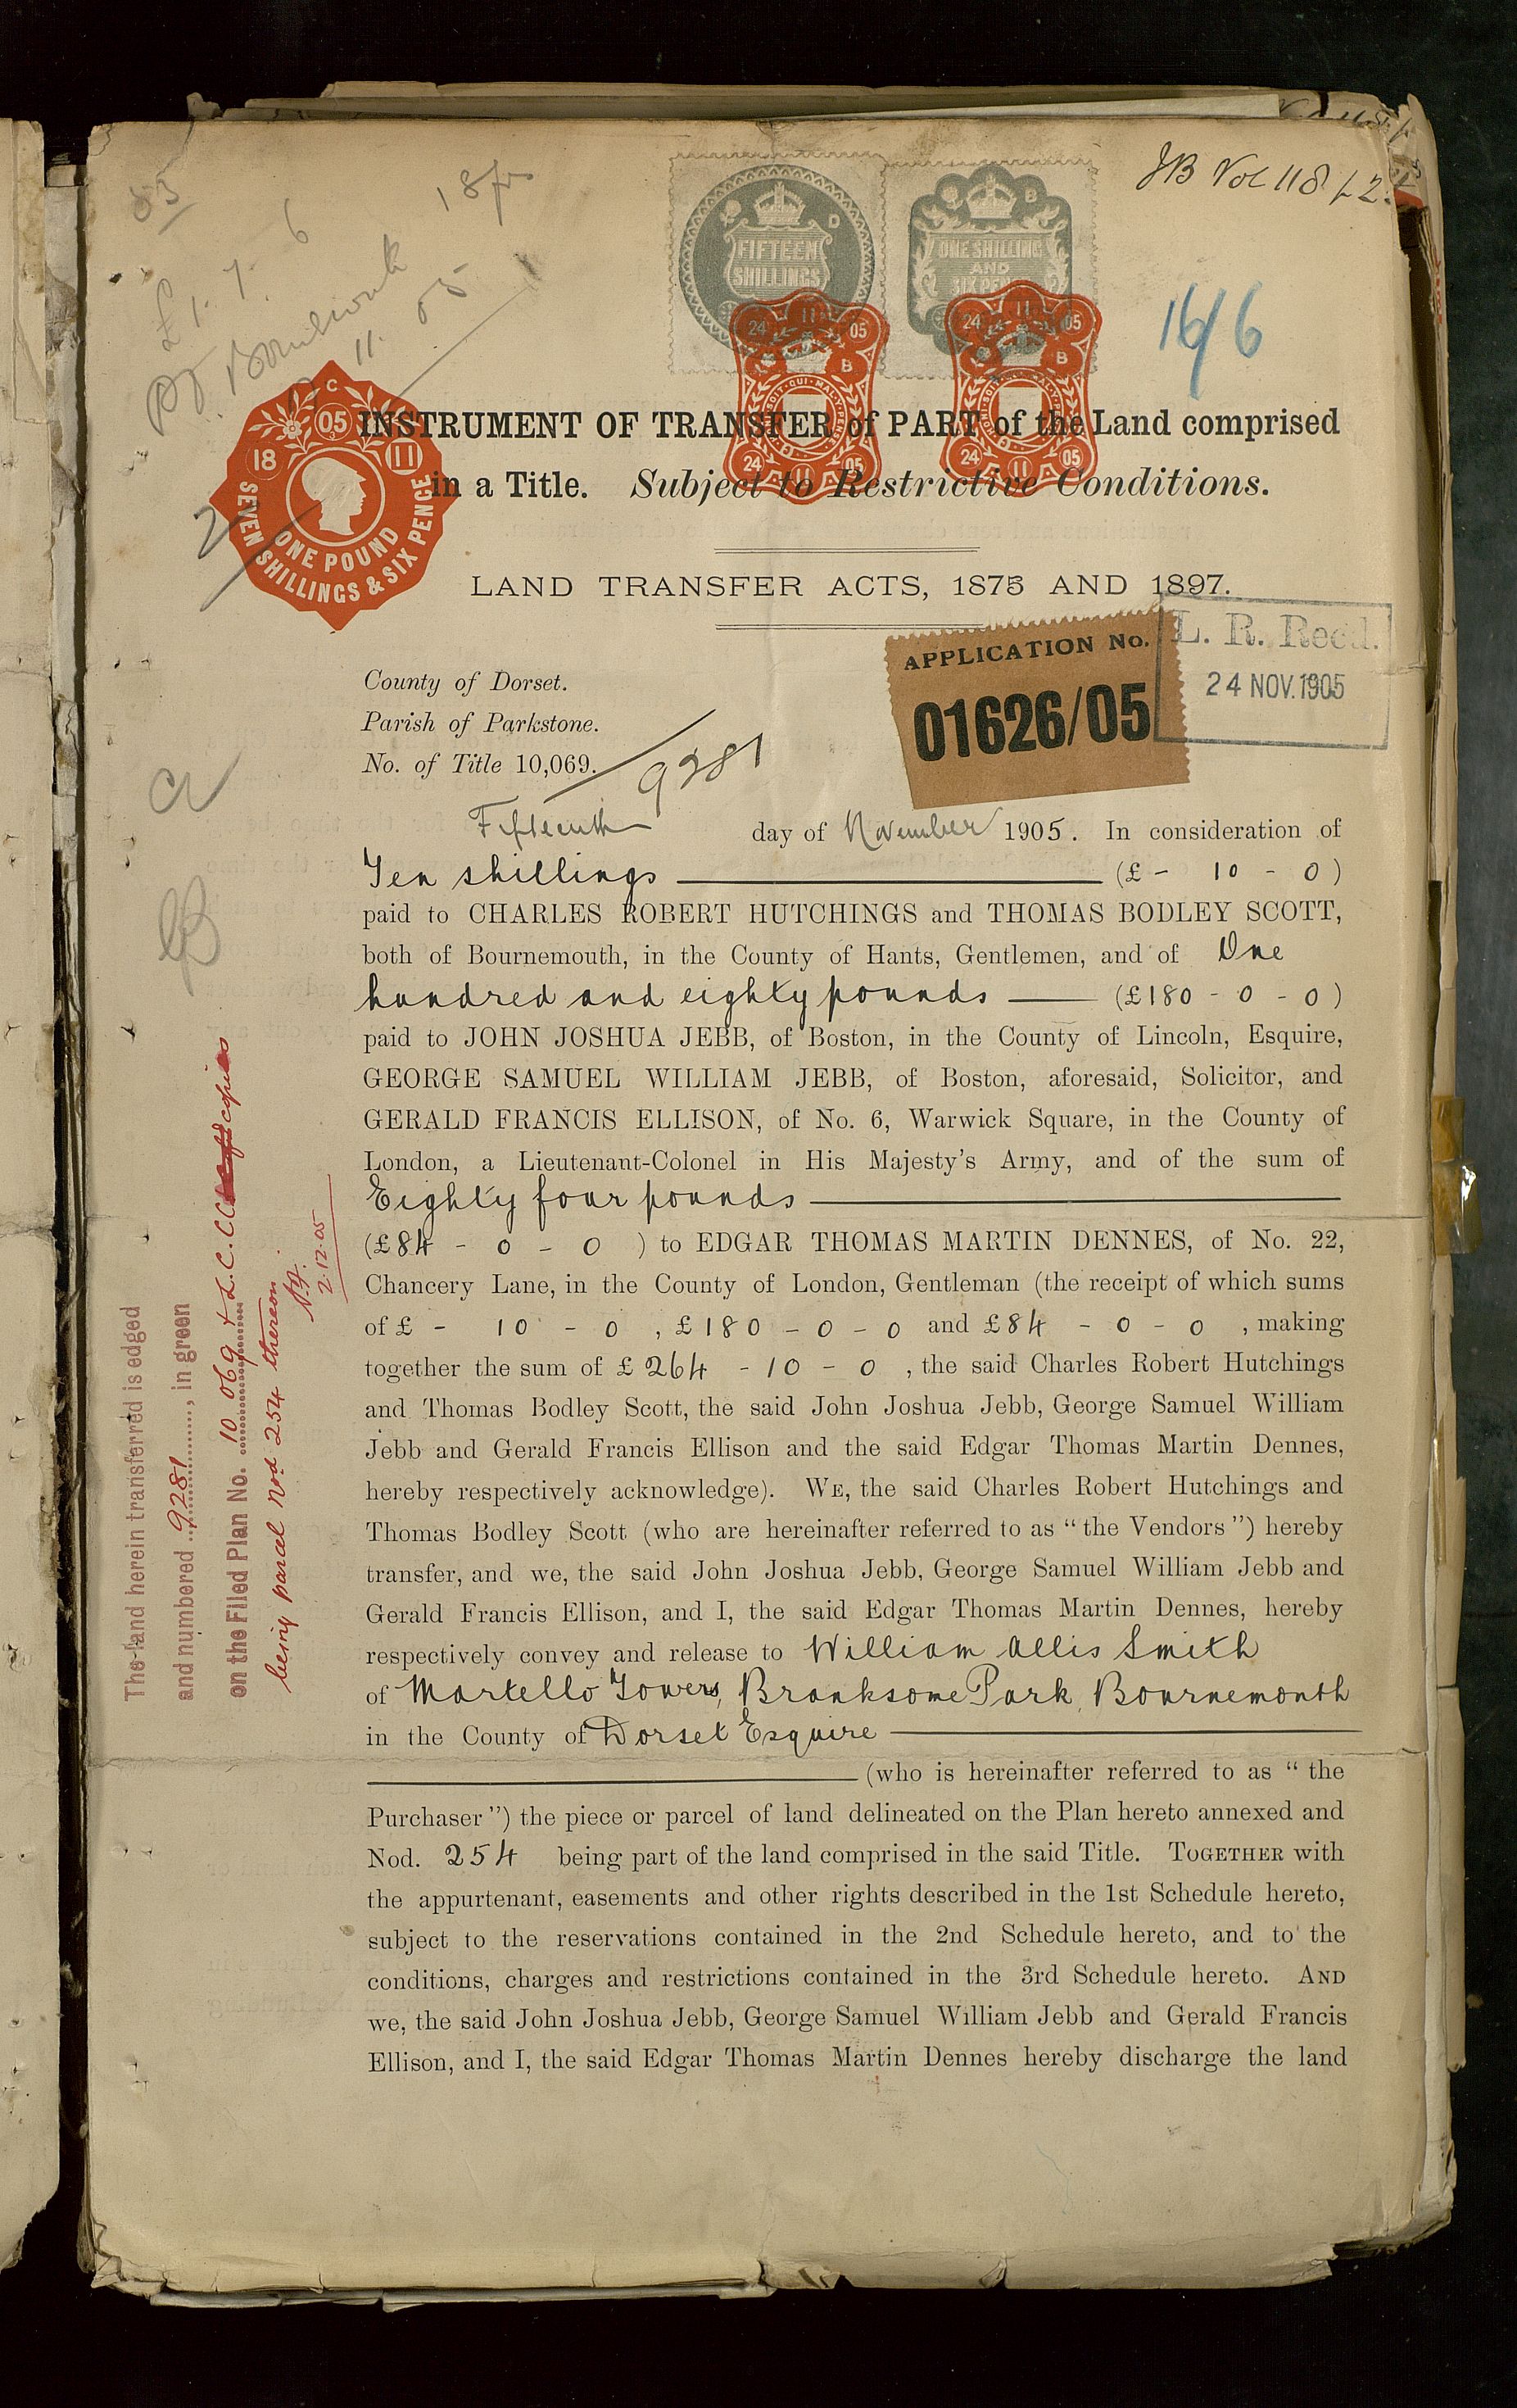 JB Vol 118
18
£1. 7. 6
11. 05
FIFTEEN
SHILLINGS
ONE SHILLING
AND
SIX PENCE
16/6
24 11 05
B
24 11 05
24 11 05
B
24 11 05
C
18 05 11
ONE POUND
SEVEN SHILLINGS & SIX PENCE
INSTRUMENT OF TRANSFER of PART of the Land comprised
in a Title. Subject to Restrictive Conditions.
LAND TRANSFER ACTS, 1875 AND 1897.
APPLICATION No.
01626/05
L. R. Recd.
24 NOV. 1905
County of Dorset.
Parish of Parkstone.
No. of Title 10,069. / 9281
Fifteenth day of November 1905. In consideration of
Ten shillings (£ - 10 - 0)
paid to CHARLES ROBERT HUTCHINGS and THOMAS BODLEY SCOTT,
both of Bournemouth, in the County of Hants, Gentlemen, and of One
hundred and eighty pounds (£180 - 0 - 0)
paid to JOHN JOSHUA JEBB, of Boston, in the County of Lincoln, Esquire,
GEORGE SAMUEL WILLIAM JEBB, of Boston, aforesaid, Solicitor, and
GERALD FRANCIS ELLISON, of No. 6, Warwick Square, in the County of
London, a Lieutenant-Colonel in His Majesty's Army, and of the sum of
Eighty four pounds
(£84 - 0 - 0 ) to EDGAR THOMAS MARTIN DENNES, of No. 22,
Chancery Lane, in the County of London, Gentleman (the receipt of which sums
of £ - 10 - 0 , £180 - 0 - 0 and £84 - 0 - 0 , making
together the sum of £264 - 10 - 0 , the said Charles Robert Hutchings
and Thomas Bodley Scott, the said John Joshua Jebb, George Samuel William
Jebb and Gerald Francis Ellison and the said Edgar Thomas Martin Dennes,
hereby respectively acknowledge). WE, the said Charles Robert Hutchings and
Thomas Bodley Scott (who are hereinafter referred to as "the Vendors") hereby
transfer, and we, the said John Joshua Jebb, George Samuel William Jebb and
Gerald Francis Ellison, and I, the said Edgar Thomas Martin Dennes, hereby
respectively convey and release to William Allis Smith
of Martello Towers, Branksome Park, Bournemouth
in the County of Dorset Esquire
(who is hereinafter referred to as "the
Purchaser") the piece or parcel of land delineated on the Plan hereto annexed and
Nod. 254 being part of the land comprised in the said Title. TOGETHER with
the appurtenant, easements and other rights described in the 1st Schedule hereto,
subject to the reservations contained in the 2nd Schedule hereto, and to the
conditions, charges and restrictions contained in the 3rd Schedule hereto. AND
we, the said John Joshua Jebb, George Samuel William Jebb and Gerald Francis
Ellison, and I, the said Edgar Thomas Martin Dennes hereby discharge the land
The land herein transferred is edged
and numbered 9281, in green
on the Filed Plan No. 10069 & L.C.C. copies
being parcel Nod 254 thereon.
2.12.05